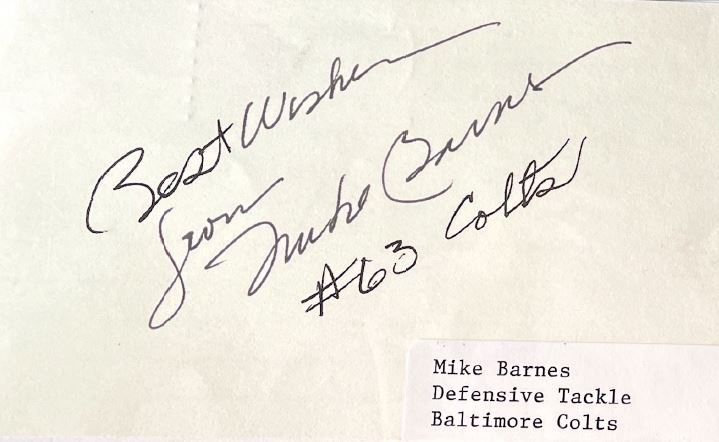 Best Wishes
from Mike Barnes
#63 Colts
Mike Barnes
Defensive Tackle
Baltimore Colts